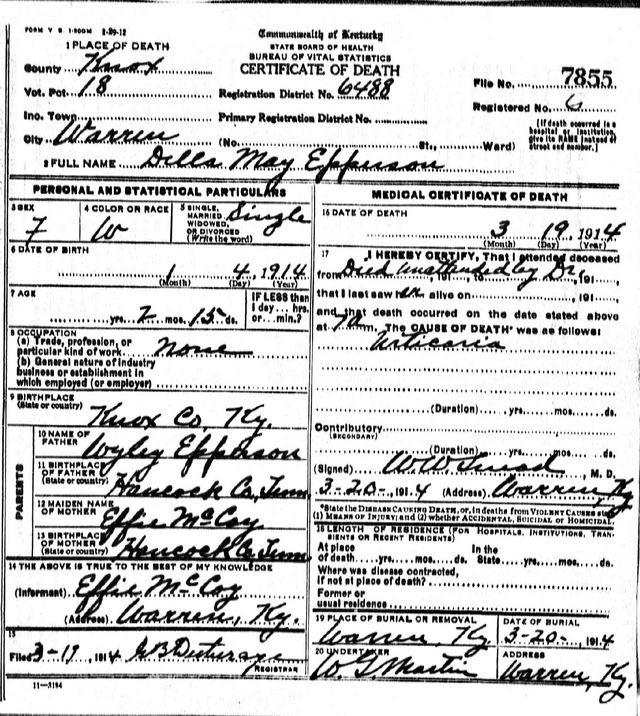 FORM V. S. 1-500M 2-29-12
Commonwealth of Kentucky
STATE BOARD OF HEALTH
BUREAU OF VITAL STATISTICS
CERTIFICATE OF DEATH
1 PLACE OF DEATH
County Knox
Vot. Pct 18
Registration District No. 6488
File No. 7855
Ino. Town
Primary Registration District No.
Registered No. 6
City Warren (No. St., Ward)
[If death occurred in a hospital or institution, give its NAME instead of street and number.]
2 FULL NAME Della May Epperson
PERSONAL AND STATISTICAL PARTICULARS
3 SEX
F
4 COLOR OR RACE
W
5 SINGLE, MARRIED, WIDOWED, OR DIVORCED (Write the word)
Single
6 DATE OF BIRTH
1 4, 1914
(Month) (Day) (Year)
7 AGE
yrs. 2 mos. 15 ds.
IF LESS than 1 day... hrs. or... min.?
8 OCCUPATION
(a) Trade, profession, or
particular kind of work None
(b) General nature of industry
business or establishment in
which employed (or employer)
9 BIRTHPLACE
(State or country)
Knox Co, Ky.
PARENTS
10 NAME OF FATHER
Wyley Epperson
11 BIRTHPLACE OF FATHER
(State or country)
Hancock Co, Tenn
12 MAIDEN NAME OF MOTHER
Effie McCoy
13 BIRTHPLACE OF MOTHER
(State or country)
Hancock Co, Tenn
14 THE ABOVE IS TRUE TO THE BEST OF MY KNOWLEDGE
(Informant) Effie McCoy
(Address) Warren, Ky.
15
Filed 3-19, 1914
REGISTRAR
11-3184
MEDICAL CERTIFICATE OF DEATH
16 DATE OF DEATH
3 19, 1914
(Month) (Day) (Year)
17
I HEREBY CERTIFY, That I attended deceased
from Died unattended by Dr, 191
that I last saw her alive on, 191
and that death occurred on the date stated above
at m. The CAUSE OF DEATH* was as follows:
Urticaria
(Duration) yrs. mos. ds.
Contributory
(SECONDARY)
(Duration) yrs. mos. ds.
(Signed) W. W., M. D.
3-20-, 1914 (Address) Warren, Ky
*State the DISEASE CAUSING DEATH, or, in deaths from VIOLENT CAUSES state
(1) MEANS OF INJURY; and (2) whether ACCIDENTAL, SUICIDAL or HOMICIDAL.
18 LENGTH OF RESIDENCE (FOR HOSPITALS, INSTITUTIONS, TRANSIENTS OR RECENT RESIDENTS)
At place of death yrs. mos. ds. In the State yrs. mos. ds.
Where was disease contracted,
if not at place of death?
Former or
usual residence
19 PLACE OF BURIAL OR REMOVAL
Warren, Ky
DATE OF BURIAL
3-20-, 1914
20 UNDERTAKER
W. G. Martin
ADDRESS
Warren, Ky.